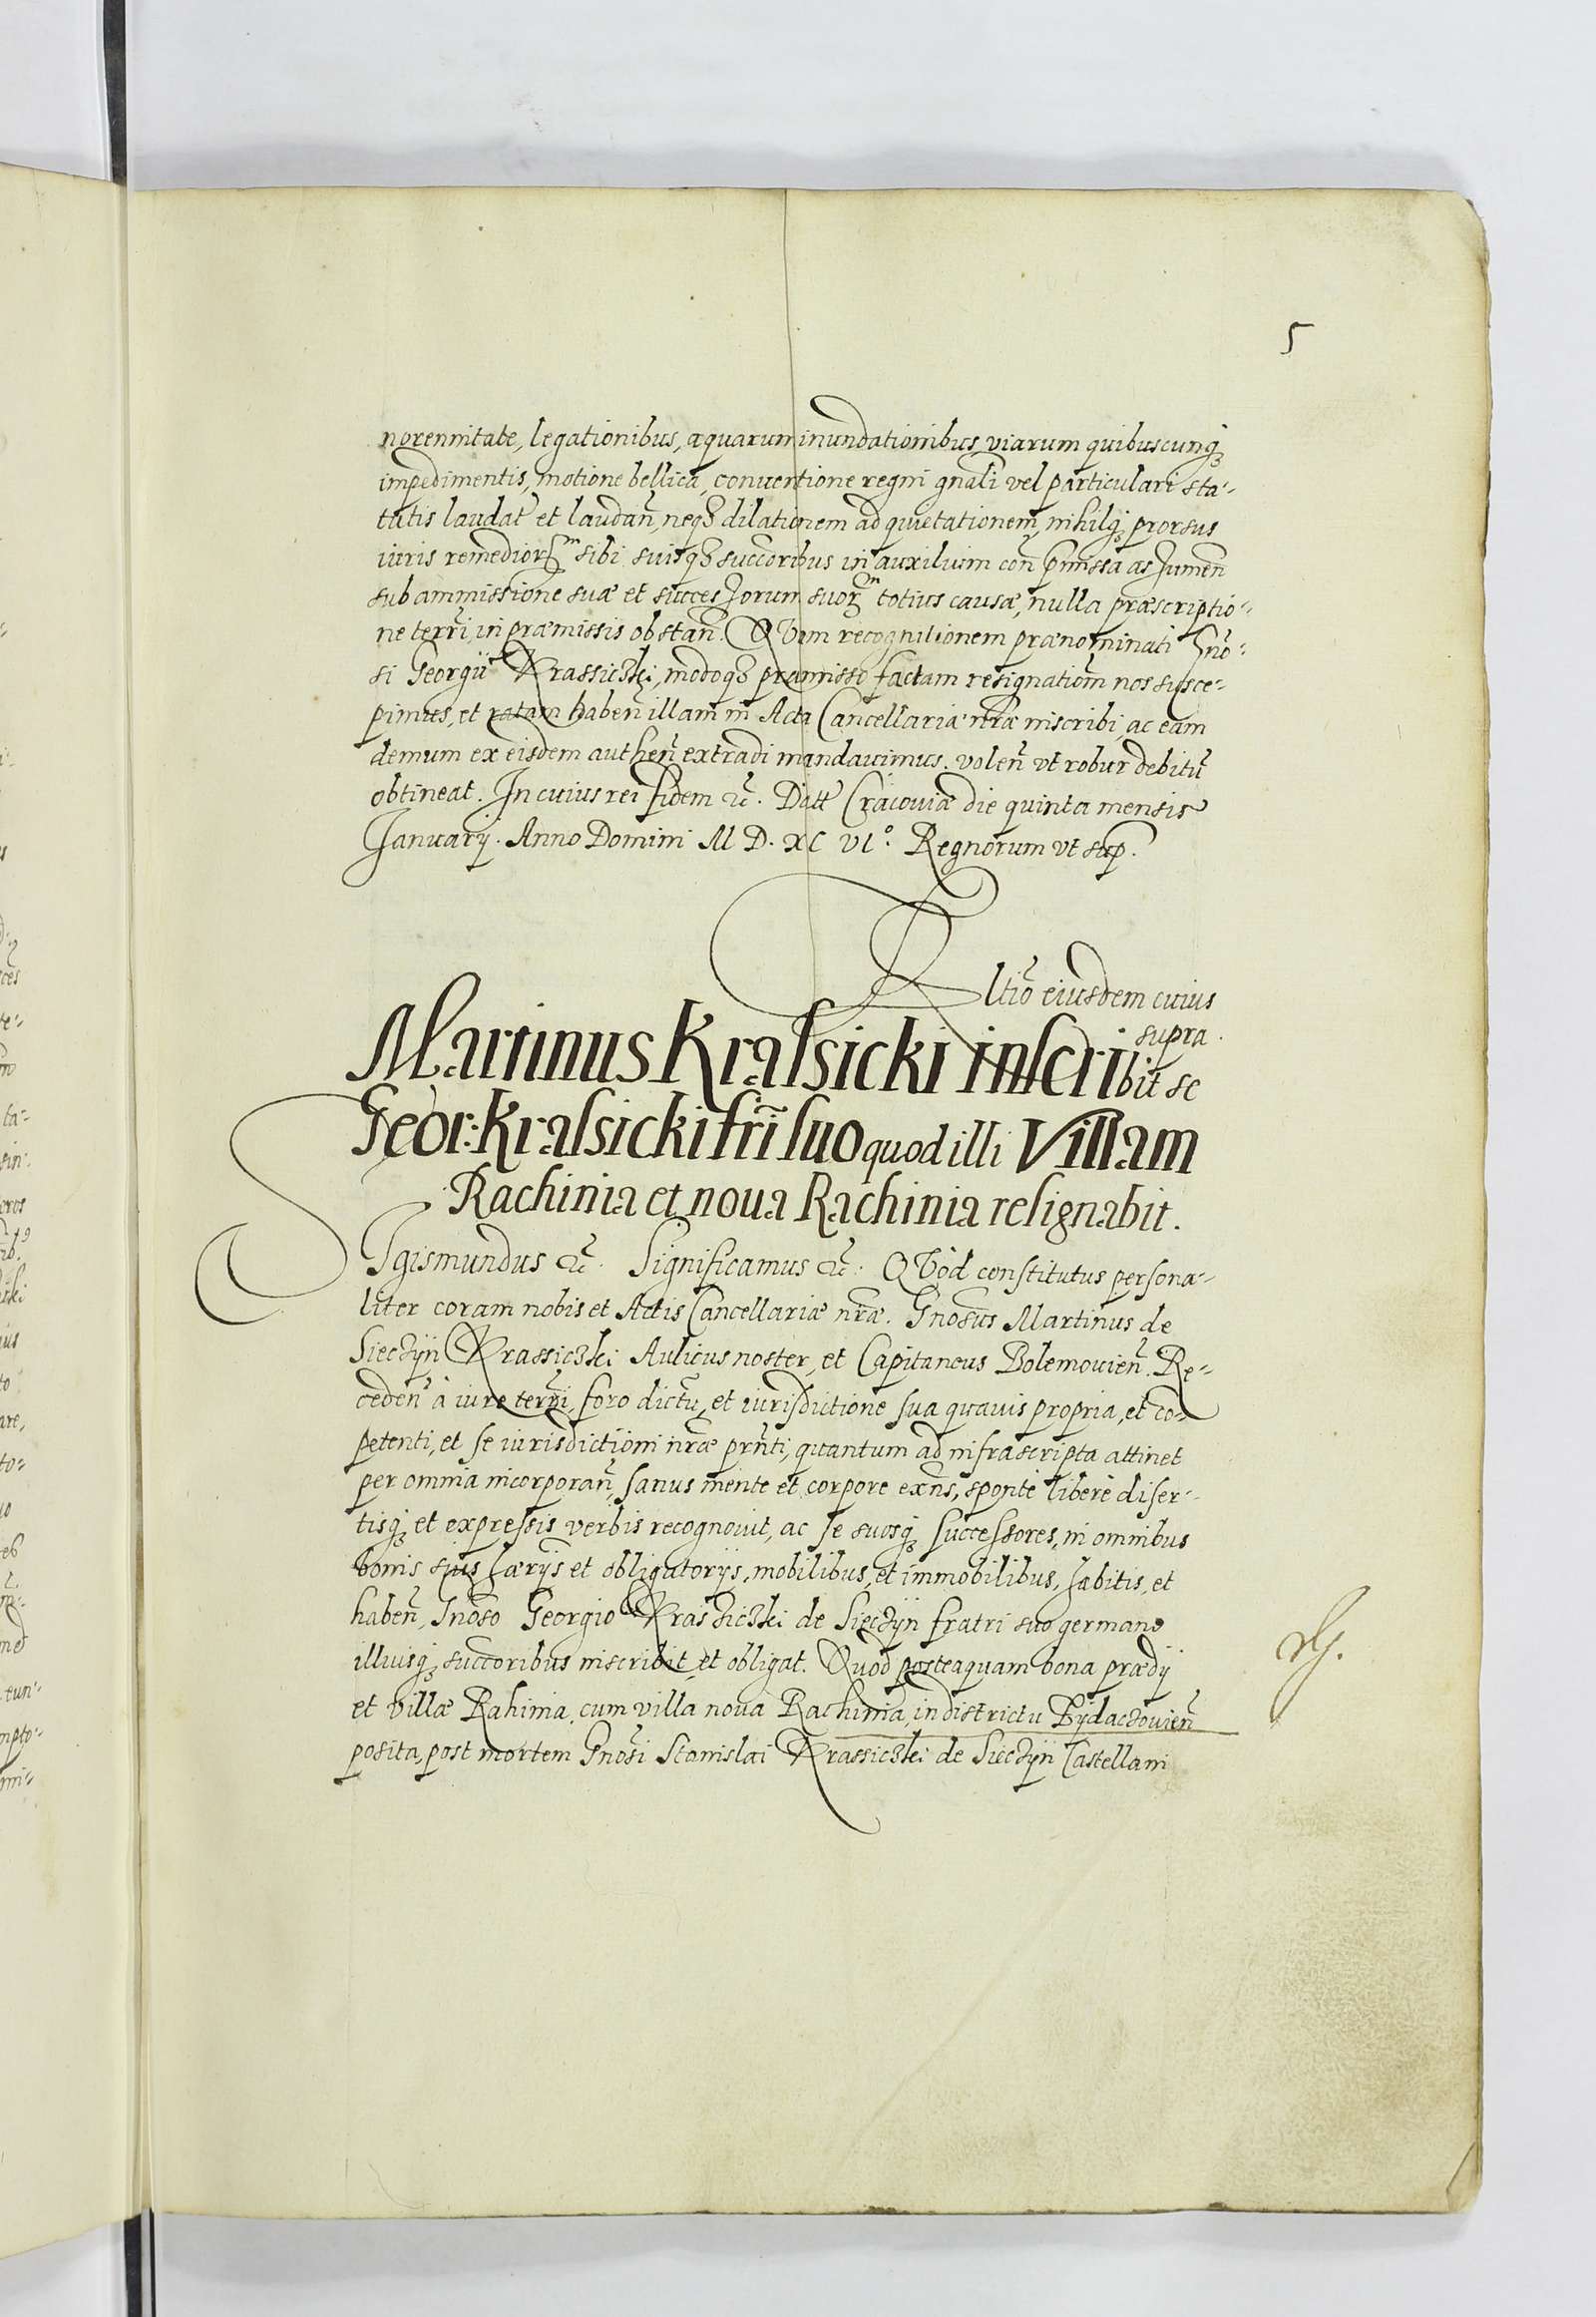 5
norennitate, legationibus, aquarum inundationibus, viarum quibuscunq₃
impedimentis, motione bellica, conventione regni gnãli vel particulari sta-
tutis laudat̃ et laudañ, neq₃ dilationem ad quietationem, nihilq₃ prorsus
iuris remedior̃ sibi suisq₃ succoribus in auxilium coñ p̃missa assumeñ
sub ammissione suæ et successorum suor̃ totius causæ, nulla præscriptio-
ne terr̃i, in præmissis obstañ. QVam recognitionem prænominati Gnõ-
si Georgii Krassiczki, modoq₃ præmisso factam resignatiom̃ nos susce-
pimus, et ratam habeñ illam in Acta Cancellariæ nr̃æ inscribi, ac eam
demum ex eisdem autheñ extradi mandavimus. voleñ vt robur debitũ
obtineat. In cuius rei fidem &c̃. Datt̃ Cracoviæ die quinta mensis
Januarÿ. Anno Domini M D. XC VIº. Regnorum vt sup̃.
Rltiõ eiusdem cuius
supra.
Martinus Krassicki inscribit se
Geor: Krassicki fr̃i suo quod illi Villam
Rachinia et noua Rachinia resignabit.
SIgismundus &c̃. Significamus &c̃. QVòd constitutus persona-
liter coram nobis et Actis Cancellariæ nr̃æ. Gnosus Martinus de
Siecżÿn Krassiczki Aulicus noster, et Capitaneus Bolemovieñ. Re-
cedeñ à iure terr̃i, foro dictũ, et iurisdictione sua quavis propria, et co-
petenti, et se iurisdictioni nr̃æ prñti, quantum ad infrascripta attinet
per omnia incorporañ, sanus mente et corpore exñs, spontè liberè diser-
tisq₃ et expressis verbis recognovit, ac se suosq₃ successores, in omnibus
bonis suis hærijs et obligatorijs, mobilibus, et immobilibus, habitis, et
habeñ, Gnõso Georgio Krassiczki de Siecżÿn fratri suo germano
illiusq₃ succoribus inscribit et obligat. Quòd posteaquam bona prædÿ
et villæ Rahinia, cum villa nova Rachinia, in districtu Zÿdaczovieñ
posita, post mortem Gnõsi Stanislai Krassiczki de Siecżÿn Castellani